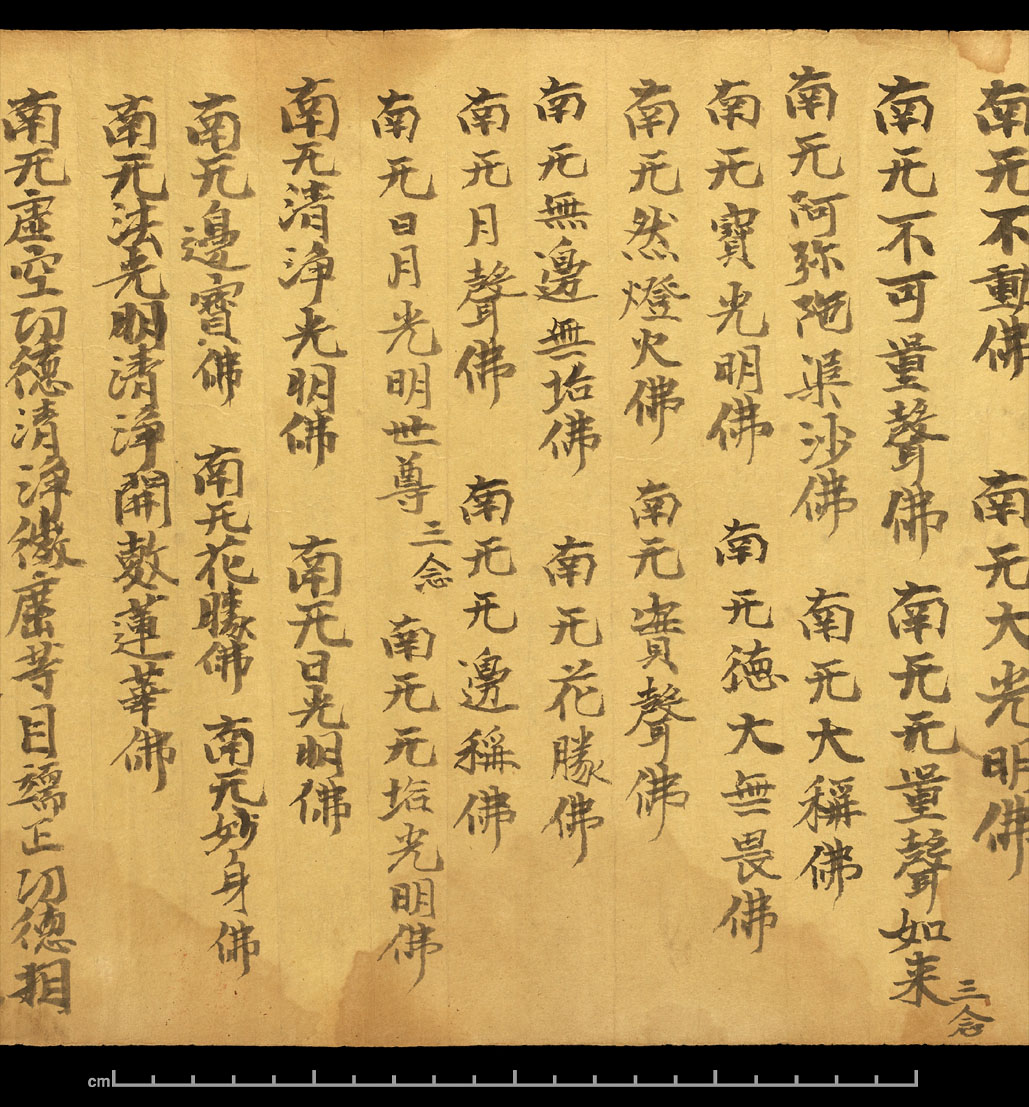 南无不動佛 南无大光明佛
南无不可量聲佛 南无无量聲如来 三念
南无阿弥陁渠沙佛 南无大稱佛
南无寶光明佛 南无德大無畏佛
南无然燈火佛 南无實聲佛
南无無邊無垢佛 南无花勝佛
南无月聲佛 南无无邊稱佛
南无日月光明世尊 三念 南无无垢光明佛
南无清浄光明佛 南无日光明佛
南无邊寶佛 南无花勝佛 南无妙身佛
南无法光明清浄開敷蓮華佛
南无虛空功德清浄微塵等目端正功德相